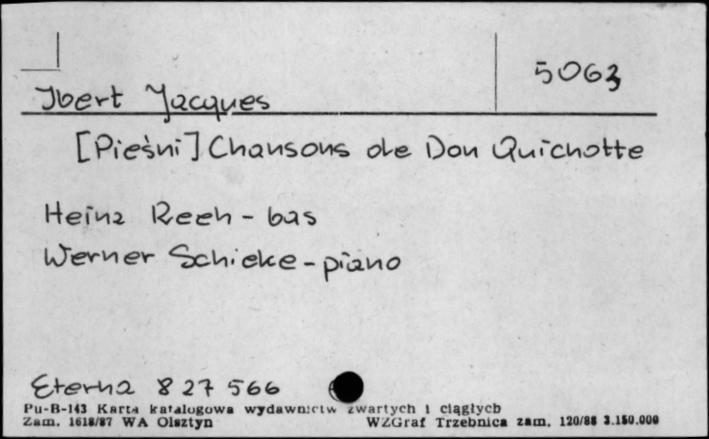 5063
Ibert Jacques
[Pieśni] Chansons de Don Quichotte
Heinz Reeh - bas
Werner Schieke - piano
Eterna 827 566
Pu-B-143 Karta katalogowa wydawnictw zwartych i ciągłych
Zam. 1618/87 WA Olsztyn WZGraf Trzebnica zam. 120/88 3.150.000